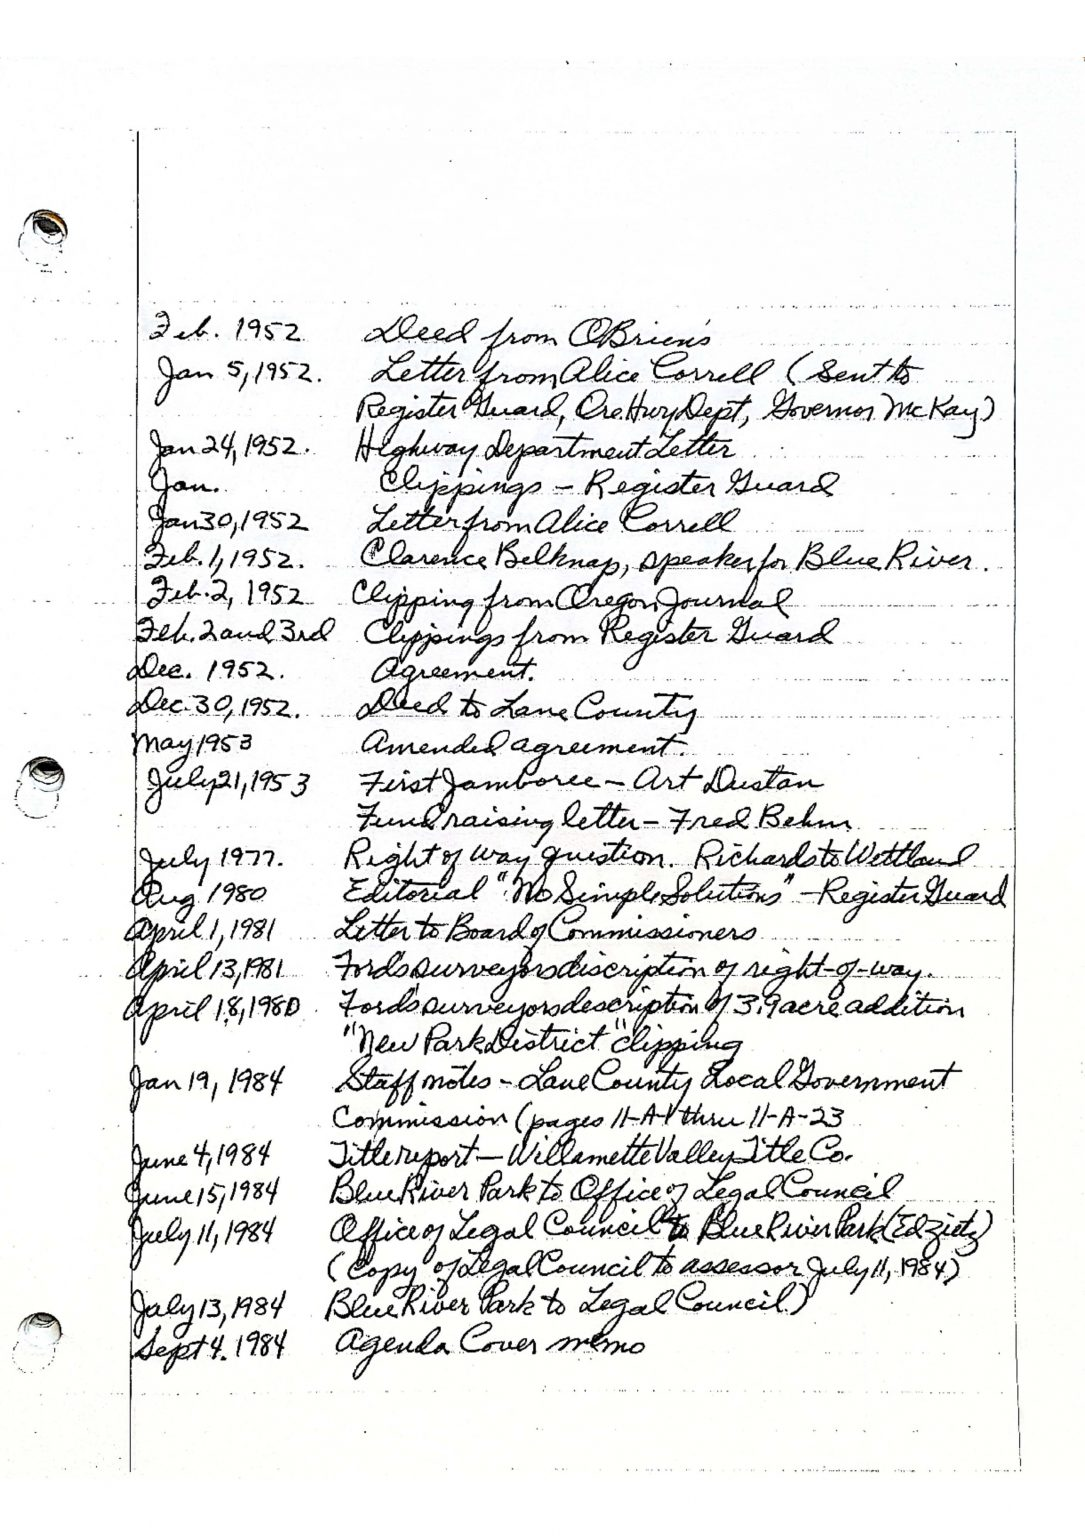 Feb. 1952 Deed from O'Brien's
Jan 5, 1952. Letter from Alice Correll (Sent to
Register Guard, Ore. Hwy Dept, Governor McKay)
Jan 24, 1952. Highway Department Letter
Jan. Clippings - Register Guard
Jan 30, 1952 Letter from Alice Correll
Feb. 1, 1952. Clarence Belknap, speaker for Blue River.
Feb. 2, 1952 Clipping from Oregon Journal
Feb. 2 and 3rd Clippings from Register Guard
Dec. 1952. Agreement.
Dec. 30, 1952. Deed to Lane County
May 1953 Amended agreement.
July 21, 1953 First Jamboree - Art Dustan
Fund raising letter - Fred Behm
July 1977. Right of way question. Richards to Wettland
Aug 1980 Editorial "No Simple Solutions" - Register Guard
April 1, 1981 Letter to Board of Commissioners
April 13, 1981 Ford's surveyors discription of right-of-way.
April 18, 1980 Ford's surveyors description of 3.9 acre addition
"New Park District" clipping
Jan 19, 1984 Staff notes - Lane County Local Government
Commission (pages 11-A-1 thru 11-A-23
June 4, 1984 Title report - Willamette Valley Title Co.
June 15, 1984 Blue River Park to Office of Legal Council
July 11, 1984 Office of Legal Council to Blue River Park (Ed Zietz)
(Copy of Legal Council to assessor July 11, 1984)
July 13, 1984 Blue River Park to Legal Council)
Sept 4. 1984 Agenda Cover memo